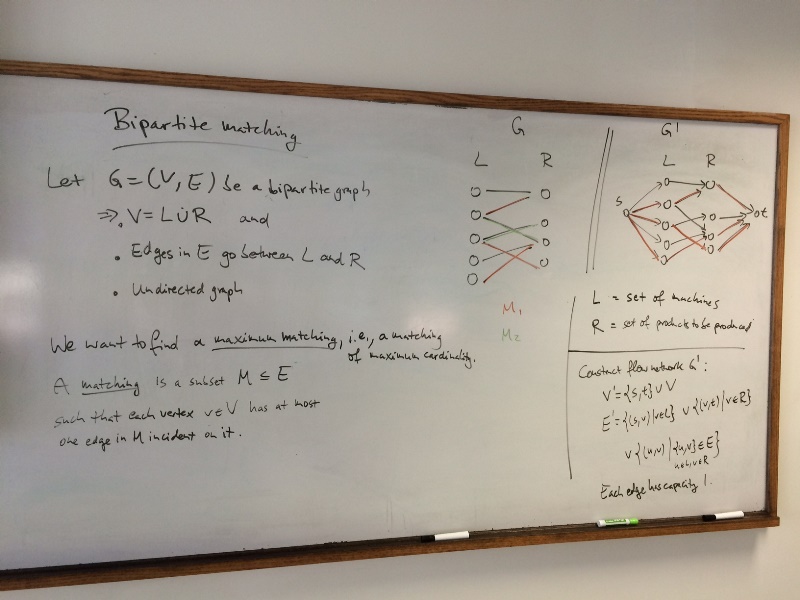 Bipartite matching
Let G = (V, E) be a bipartite graph
⇒ • V = L ∪̇ R and
• Edges in E go between L and R
• Undirected graph
We want to find a maximum matching, i.e., a matching
of maximum cardinality.
A matching is a subset M ⊆ E
such that each vertex v ∈ V has at most
one edge in M incident on it.
G
L R
M₁
M₂
G'
L R
s
t
L = set of machines
R = set of products to be produced
Construct flow network G':
V' = {s, t} ∪ V
E' = {(s, v) | v ∈ L} ∪ {(v, t) | v ∈ R}
∪ {(u, v) | {u, v} ∈ E}
u ∈ L, v ∈ R
Each edge has capacity 1.